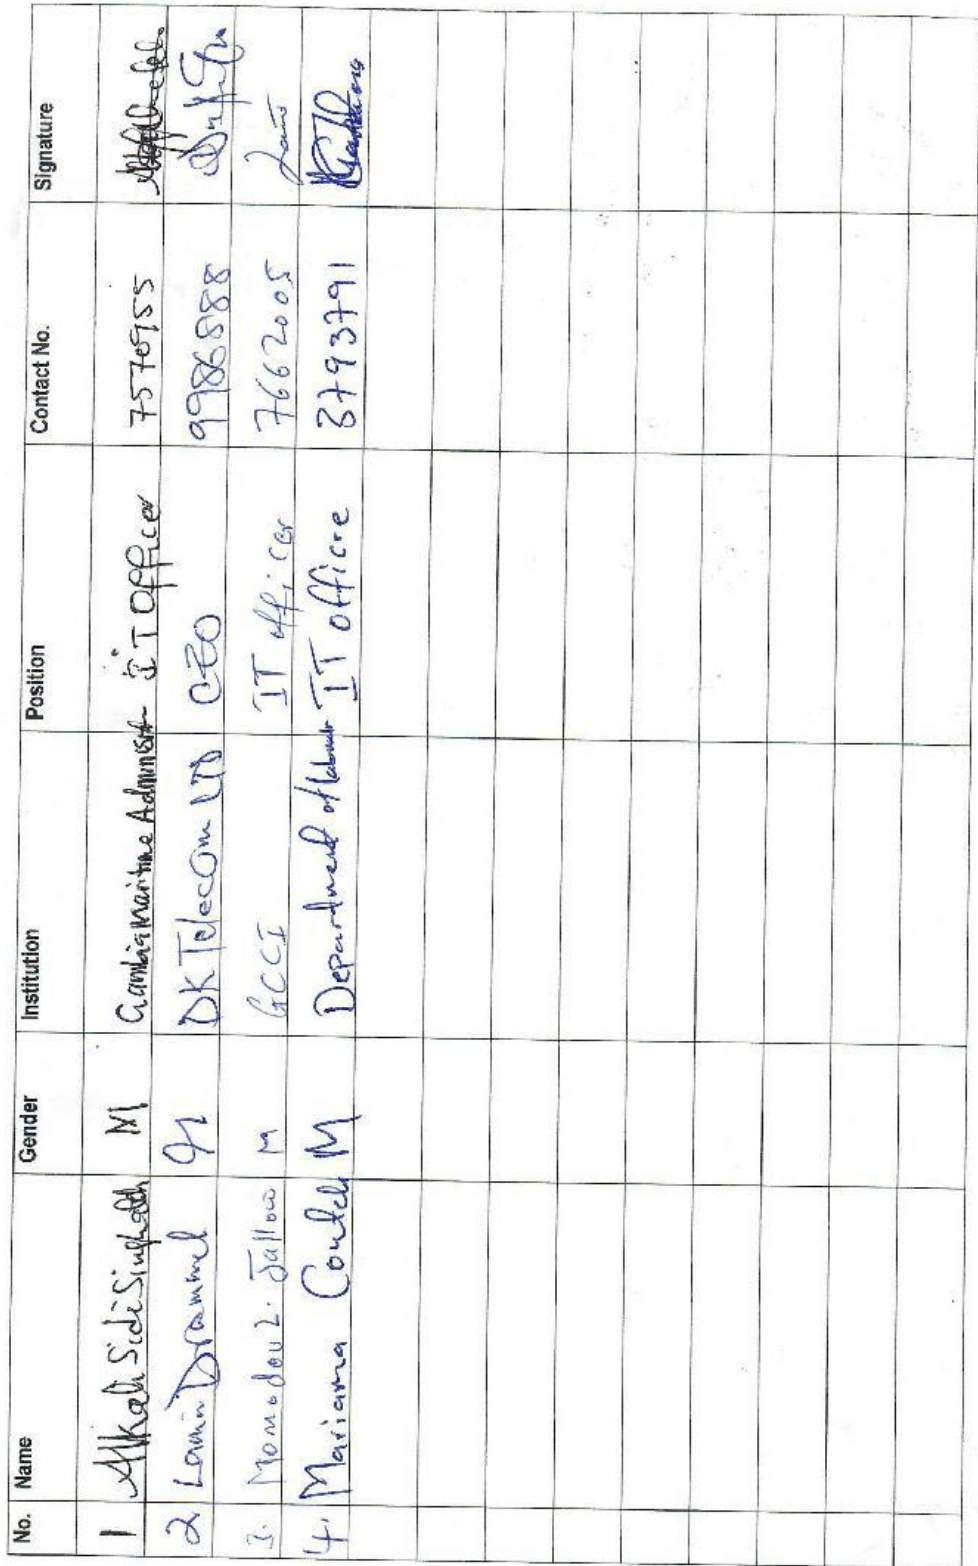 No. Name Gender Institution Position Contact No. Signature
1 Alkali Sidi Singhateh M Gambia Maritime Administr IT Officer 7570955
2 Lamin Drammeh M DK Telecom LTD CEO 9986888
3. Momodou L. Jallow M GCCI IT officer 7662005
4. Mariama Conteh M Department of labour IT officre 3793791